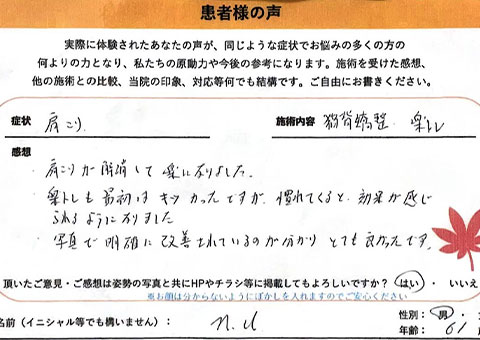 患者様の声
実際に体験されたあなたの声が、同じような症状でお悩みの多くの方の
何よりの力となり、私たちの原動力や今後の参考になります。施術を受けた感想、
他の施術との比較、当院の印象、対応等何でも結構です。ご自由にお書きください。
症状 肩こり 施術内容 猫背矯整 楽トレ
感想
・肩こりが解消して楽になりました。
・楽トレも最初はキツかったですが、慣れてくると効果が感じ
られるようになりました
・写真で明確に改善されているのが分かりとても良かったです。
頂いたご意見・ご感想は姿勢の写真と共にHPやチラシ等に掲載してもよろしいですか? はい ・ いいえ
※お顔は分からないようにぼかしを入れますのでご安心ください
名前(イニシャル等でも構いません): 性別: 男 ・
年齢: 61